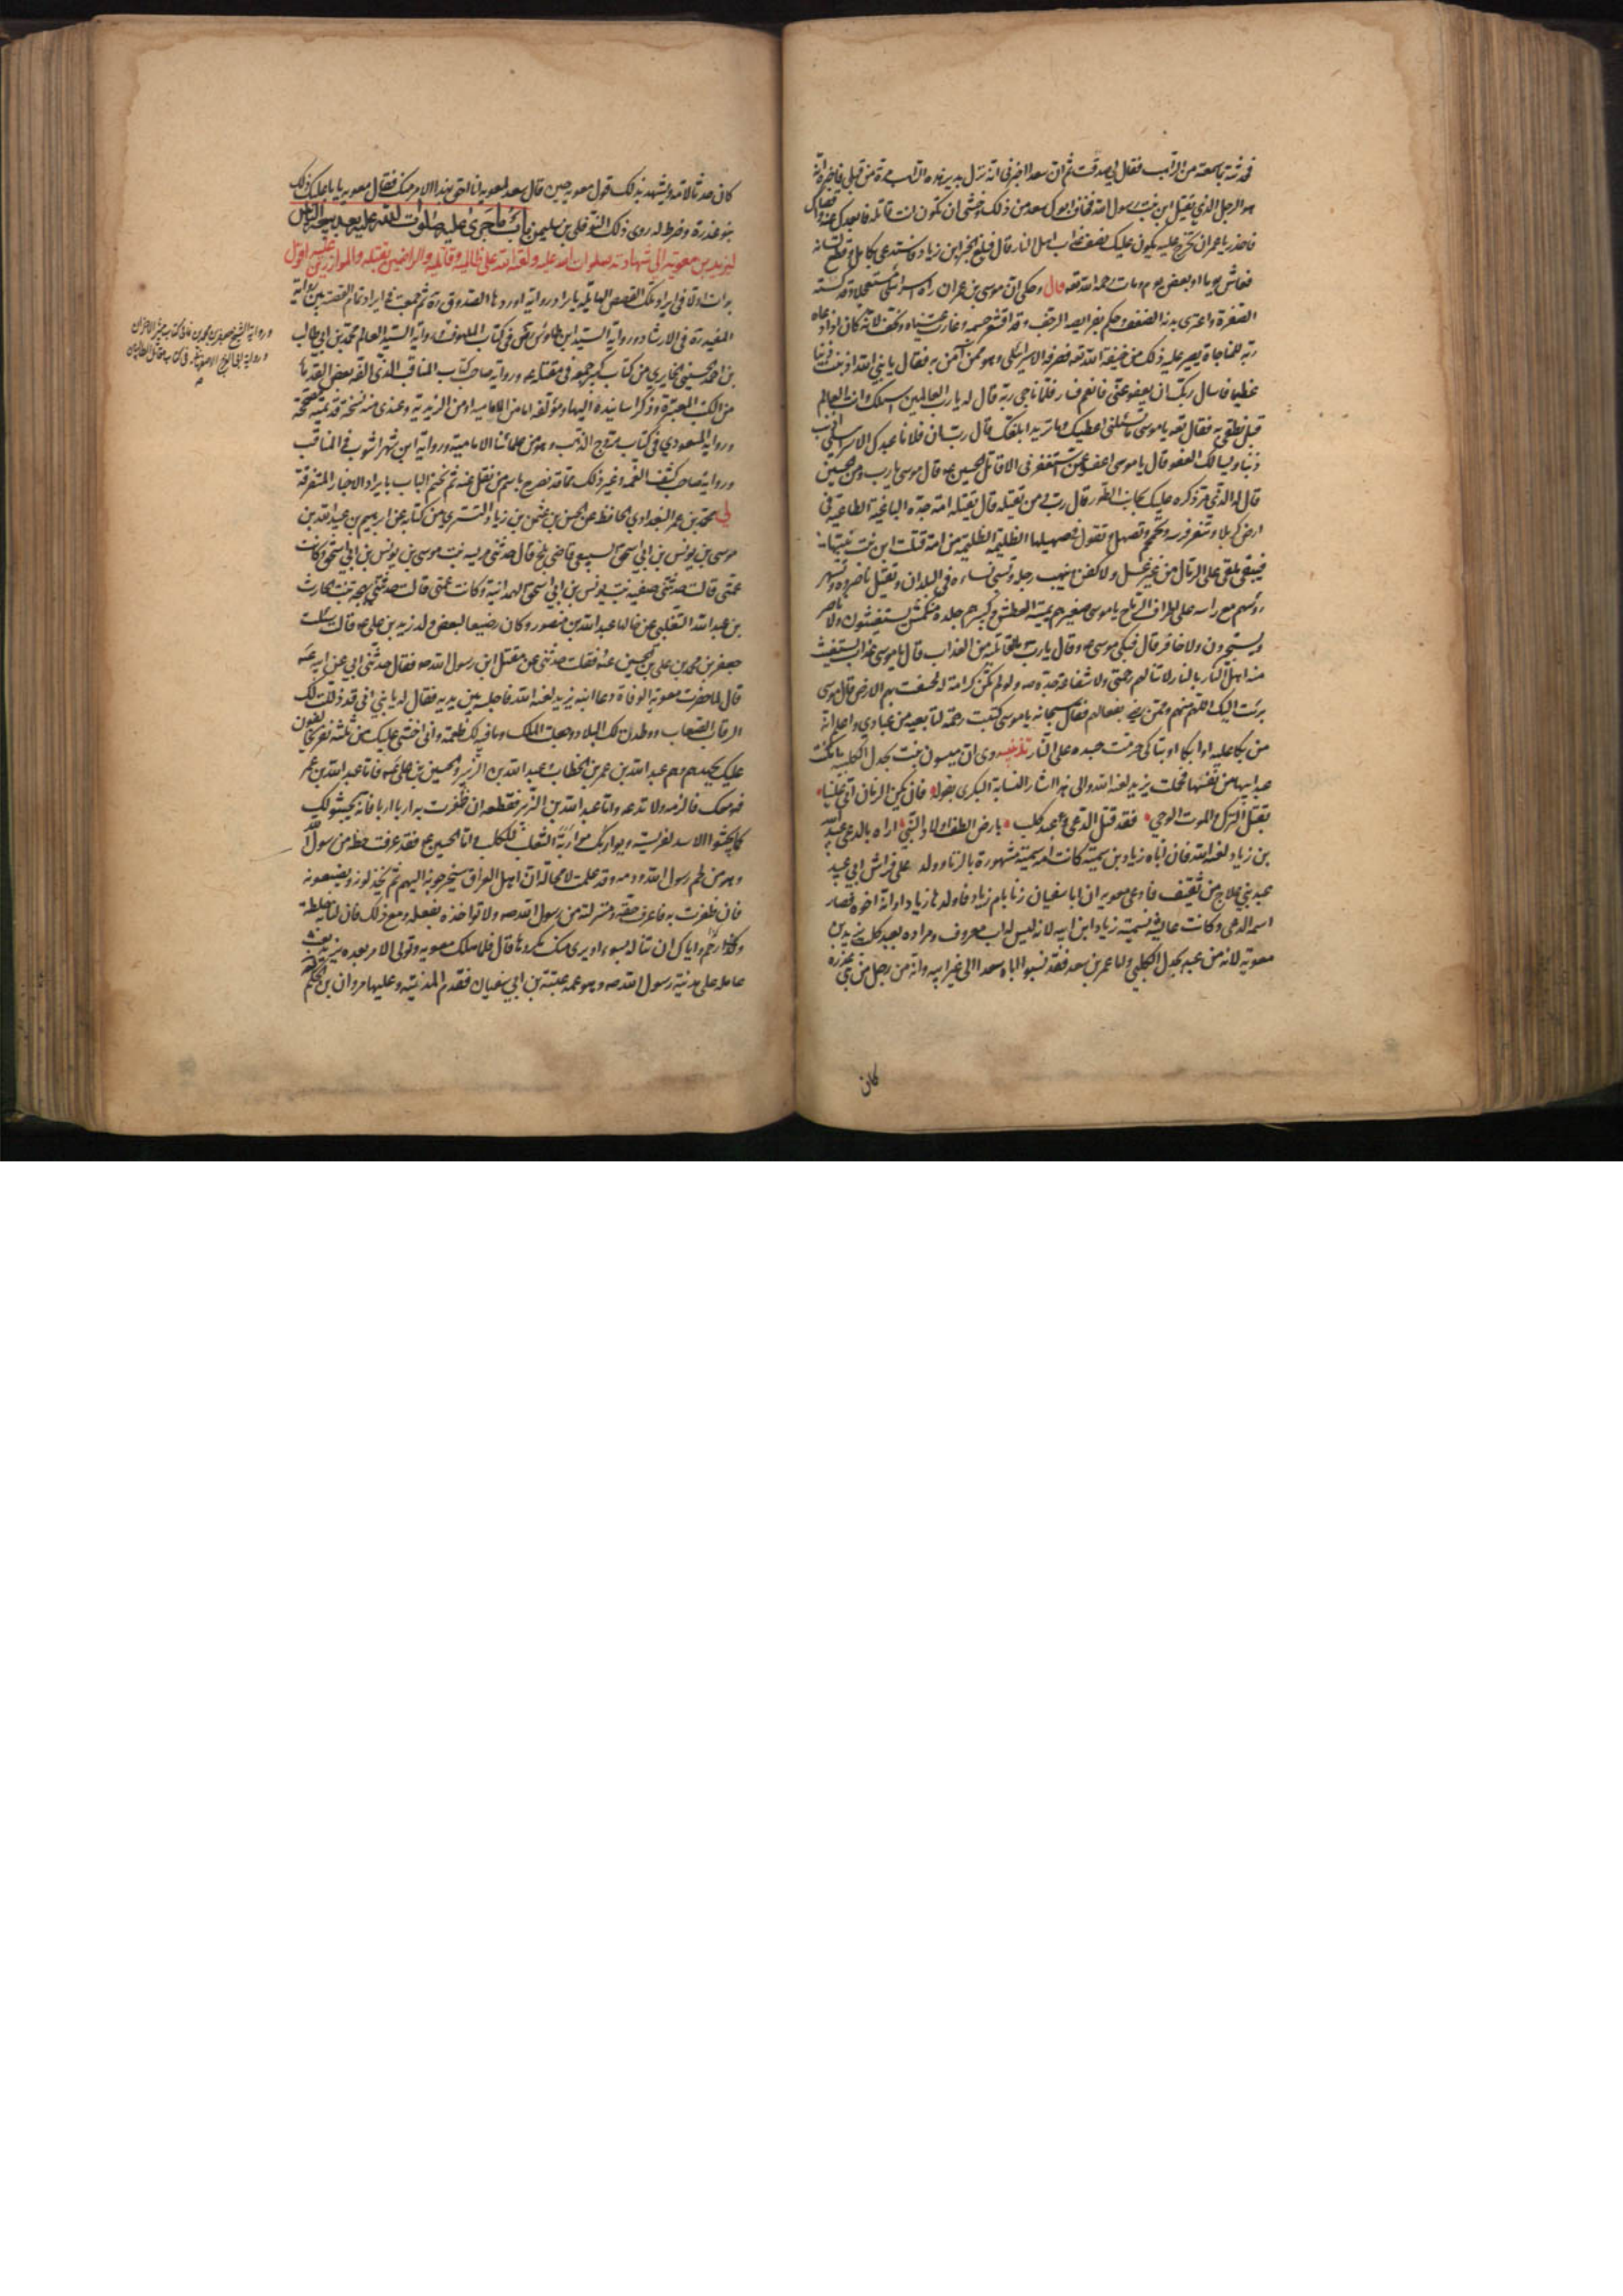 فحدثته بما سمعته من الراهب فقال لي صدقت ثم ان سعدا اخبرني انه نزل بدير هذه الراهب مرة من قبلي فاخبره انه
هو الرجل الذي يقتل ابن بنت رسول الله فخاف ابوك سعد من ذلك وخشي ان تكون انت قاتله فابعدك عنه واقصاك
فاحذر يا عمر ان تخرج عليه يكون عليك نصف عذاب اهل النار قال فبلغ الخبر ابن زياد فاستدعى بكامل وقطع لسانه
فعاش يوما او بعض يوم ومات رحمه الله تعه قال وحكي ان موسى بن عمران راه اسرائيلي مستعجلا وقد كسته
الصفرة واعترى بدنه الضعف وحكم بفرايصه الرجف وقد اقشعر جسمه وغارت عيناه ونحف لانه كان اذا دعاه
ربه للمناجاة يصير عليه ذلك من خيفة الله تعه فعرفه الاسرائيلي وهو ممن آمن به فقال يا نبي الله اذنبت ذنبا
عظيما فاسال ربك ان يعفو عني فانعم فسار فلما ناجى ربه قال له يا رب العالمين اسئلك وانت العالم
قبل نطقي به فقال تعه يا موسى ما تسئلني اعطيك وما تريد ابلغك قال رب ان فلانا عبدك الاسرائيلي اذنب
ذنبا ويسالك العفو قال يا موسى اعفو عمن استغفرني الا قاتل الحسين ع قال موسى يا رب ومن الحسين
قال له الذي مر ذكره عليك بجانب الطور قال رب من يقتله قال يقتله امة جده الباغية الطاغية في
ارض كربلا وتنفر فرسه وتحمحم وتصهل وتقول في صهيلها الظليمة الظليمة من امة قتلت ابن بنت نبيها
فيبقى ملقى على الرمال من غير غسل ولا كفن وينهب رحله وتسبى نساءه في البلدان ويقتل ناصروه وتشهر
رؤسهم مع راسه على اطراف الرماح يا موسى صغيرهم يميته العطش وكبيرهم جلده منكمش يستغيثون ولا ناصر
ويستجيرون ولا خافر قال فبكى موسى ع وقال يا رب وما لقاتليه من العذاب قال يا موسى عذاب يستغيث
منه اهل النار بالنار لا تنالهم رحمتي ولا شفاعة جده ص ولو لم تكن كرامة له لخسفت بهم الارض قال موسى
برئت اليك اللهم منهم وممن رضي بفعالهم فقال سبحانه يا موسى كتبت رحمة لتابعيه من عبادي واعلم انه
من بكا عليه او ابكا او تباكى حرمت جسده على النار تذنيب روي ان ميسون بنت بجدل الكلبية امكنت
عبد ابيها من نفسها فحملت يزيد لعنه الله والى هذا اشار النسابة البكري بقوله فان يكن الزمان اتى علينا
بقتل الترك والموت الوحي فقد قتل الدعي وعبد كلب بارض الطف اولاد النبي اراد بالدعي عبيد الله
بن زياد لعنه الله فان اباه زياد بن سمية كانت امه سمية مشهورة بالزنا وولد على فراش ابي عبيد
عبد بني علاج من ثقيف فادعى معويه ان ابا سفيان زنا بام زياد فاولدها زيادا وانه اخوه فصار
اسمه الدعي وكانت عايشة تسميه زياد ابن ابيه لانه ليس له اب معروف ومراده بعبد كلب يزيد بن
معوية لانه من عبد بجدل الكلبي واما عمر بن سعد فقد نسبوا اباه سعدا الى غير ابيه وانه من رجل من بني عذرة
كان
كان خدنا لامه ويشهد بذلك قول معويه حين قال سعد لمعويه انا احق بهذا الامر منك فقال معويه يابا عليك ذلك
بنو عذرة وضرط له روى ذلك النوفلي بن سليمن باب ما جرى عليه صلوات الله عليه بعد بيعة الناس
ليزيد بن معوية الى شهادته صلوات الله عليه ولعنة الله على ظالميه وقاتليه والراضين بقتله والموازرين عليه اقول
بدات اولا في ايراد تلك القصص الهايلة بايراد رواية اوردها الصدوق ره ثم جمعت في ايراد تمام القصة بين رواية
المفيد ره في الارشاد ورواية السيد ابن طاوس رض في كتاب الملهوف ورواية السيد العالم محمد بن ابي طالب
بن احمد الحسيني الحايري من كتاب كبير جمعه في مقتله ع ورواية صاحب كتاب المناقب الذي الفه بعض القدماء
من الكتب المعتبرة وذكر اسانيده اليها ومؤلفه اما من الامامية او من الزيدية وعندي منه نسخة قديمة مصححة
ورواية المسعودي في كتاب مروج الذهب وهو من علمائنا الامامية ورواية ابن شهراشوب في المناقب
ورواية صاحب كشف الغمه وغير ذلك مما قد نصرح باسم من ننقل عنه ثم نختم الباب بايراد الاخبار المتفرقة
لي محمد بن عمر البغدادي الحافظ عن الحسن بن عثمن بن زياد التستري من كتابه عن ابرهيم بن عبيد الله بن
موسى بن يونس بن ابي اسحق السبيعي قاضي بلخ قال حدثتني مريسه بنت موسى بن يونس بن ابي اسحق وكانت
عمتي قالت حدثتني صفية بنت يونس بن ابي اسحق الهمدانية وكانت عمتي قالت حدثتني بهجة بنت الحارث
بن عبد الله التغلبي عن خالها عبد الله بن منصور وكان رضيعا لبعض ولد زيد بن علي ع قال سئلت
جعفر بن محمد بن علي بن الحسين ع فقلت حدثني عن مقتل ابن رسول الله ص فقال حدثني ابي عن ابيه ع
قال لما حضرت معويه الوفاة دعا ابنه يزيد لعنه الله فاجلسه بين يديه فقال له يا بني اني قد ذللت لك
الرقاب الصعاب ووطدت لك البلاد وجعلت الملك وما فيه لك طعمة واني اخشى عليك من ثلثة نفر يخالفون
عليك بجهدهم وهم عبد الله بن عمر بن الخطاب وعبد الله بن الزبير والحسين بن علي ع فاما عبد الله بن عمر
فهو معك فالزمه ولا تدعه واما عبد الله بن الزبير فقطعه ان ظفرت به اربا اربا فانه يجثو لك
كما يجثوا الاسد لفريسته ويواربك مواربة الثعلب للكلب واما الحسين ع فقد عرفت حظه من رسول الله
وهو من لحم رسول الله ودمه وقد علمت لا محالة ان اهل العراق سيخرجونه اليهم ثم يخذلونه ويضيعونه
فان ظفرت به فاعرف حقه ومنزلته من رسول الله ص ولا تواخذه بفعله ومع ذلك فان لنا به خلطة
ورحما واياك ان تناله بسوء او يرى منك مكروها قال فلما هلك معويه وتولى الامر بعده يزيد بعث
عامله على مدينة رسول الله ص وهو عمه عتبة بن ابي سفيان فقدم المدينة وعليها مروان بن الحكم
ورواية الشيخ جعفر بن محمد بن نما في كتاب مثير الاحزان
ورواية ابي الفرج الاصفهاني في كتاب مقاتل الطالبيين